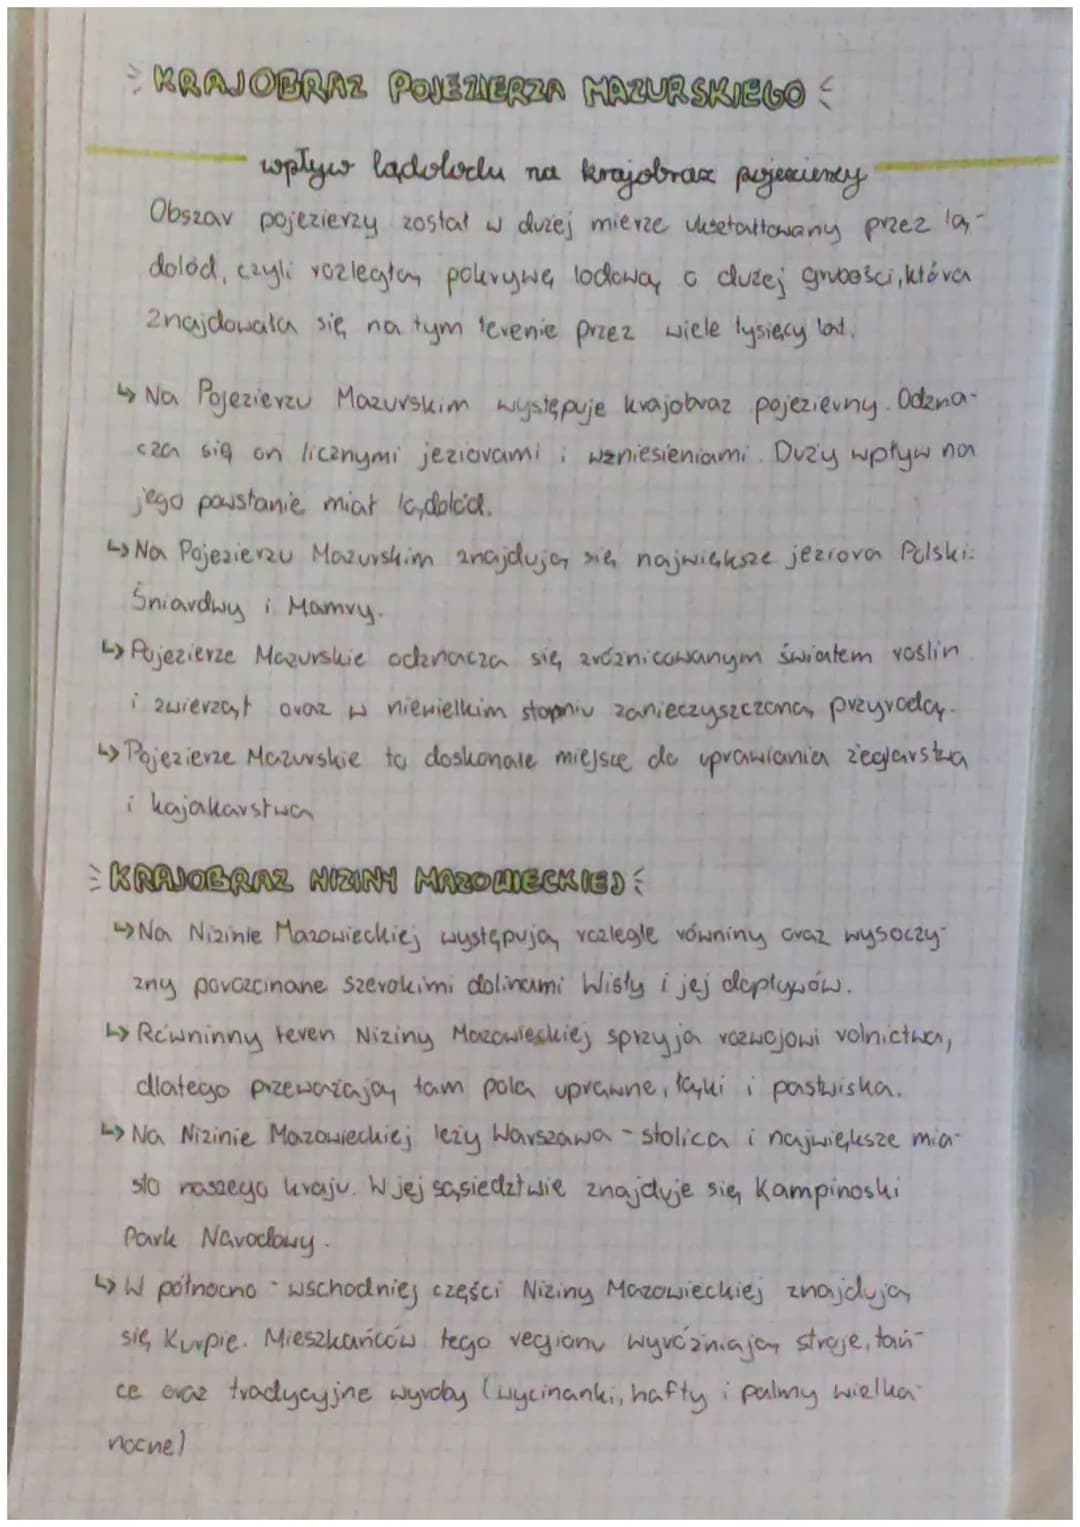 KRAJOBRAZ POJEZIERZA MAZURSKIEGO
wpływ lądolodu na krajobraz pojezierzy
Obszar pojezierzy został w dużej mierze ukształtowany przez lą-
dolód, czyli rozległą pokrywę lodową o dużej grubości, która
znajdowała się na tym terenie przez wiele tysięcy lat.
↳ Na Pojezierzu Mazurskim występuje krajobraz pojezierny. Odzna-
cza się on licznymi jeziorami i wzniesieniami. Duży wpływ na
jego powstanie miał lądolód.
↳ Na Pojezierzu Mazurskim znajdują się największe jeziora Polski:
Śniardwy i Mamry.
↳ Pojezierze Mazurskie odznacza się zróżnicowanym światem roślin
i zwierząt oraz w niewielkim stopniu zanieczyszczoną przyrodą.
↳ Pojezierze Mazurskie to doskonałe miejsce do uprawiania żeglarstwa
i kajakarstwa
KRAJOBRAZ NIZINY MAZOWIECKIEJ
↳ Na Nizinie Mazowieckiej występują rozległe równiny oraz wysoczy-
zny porozcinane szerokimi dolinami Wisły i jej dopływów.
↳ Równinny teren Niziny Mazowieckiej sprzyja rozwojowi rolnictwa,
dlatego przeważają tam pola uprawne, łąki i pastwiska.
↳ Na Nizinie Mazowieckiej leży Warszawa - stolica i największe mia-
sto naszego kraju. W jej sąsiedztwie znajduje się Kampinoski
Park Narodowy.
↳ W północno - wschodniej części Niziny Mazowieckiej znajdują
się Kurpie. Mieszkańców tego regionu wyróżniają stroje, tań-
ce oraz tradycyjne wyroby (wycinanki, hafty i palmy wielka-
nocne)